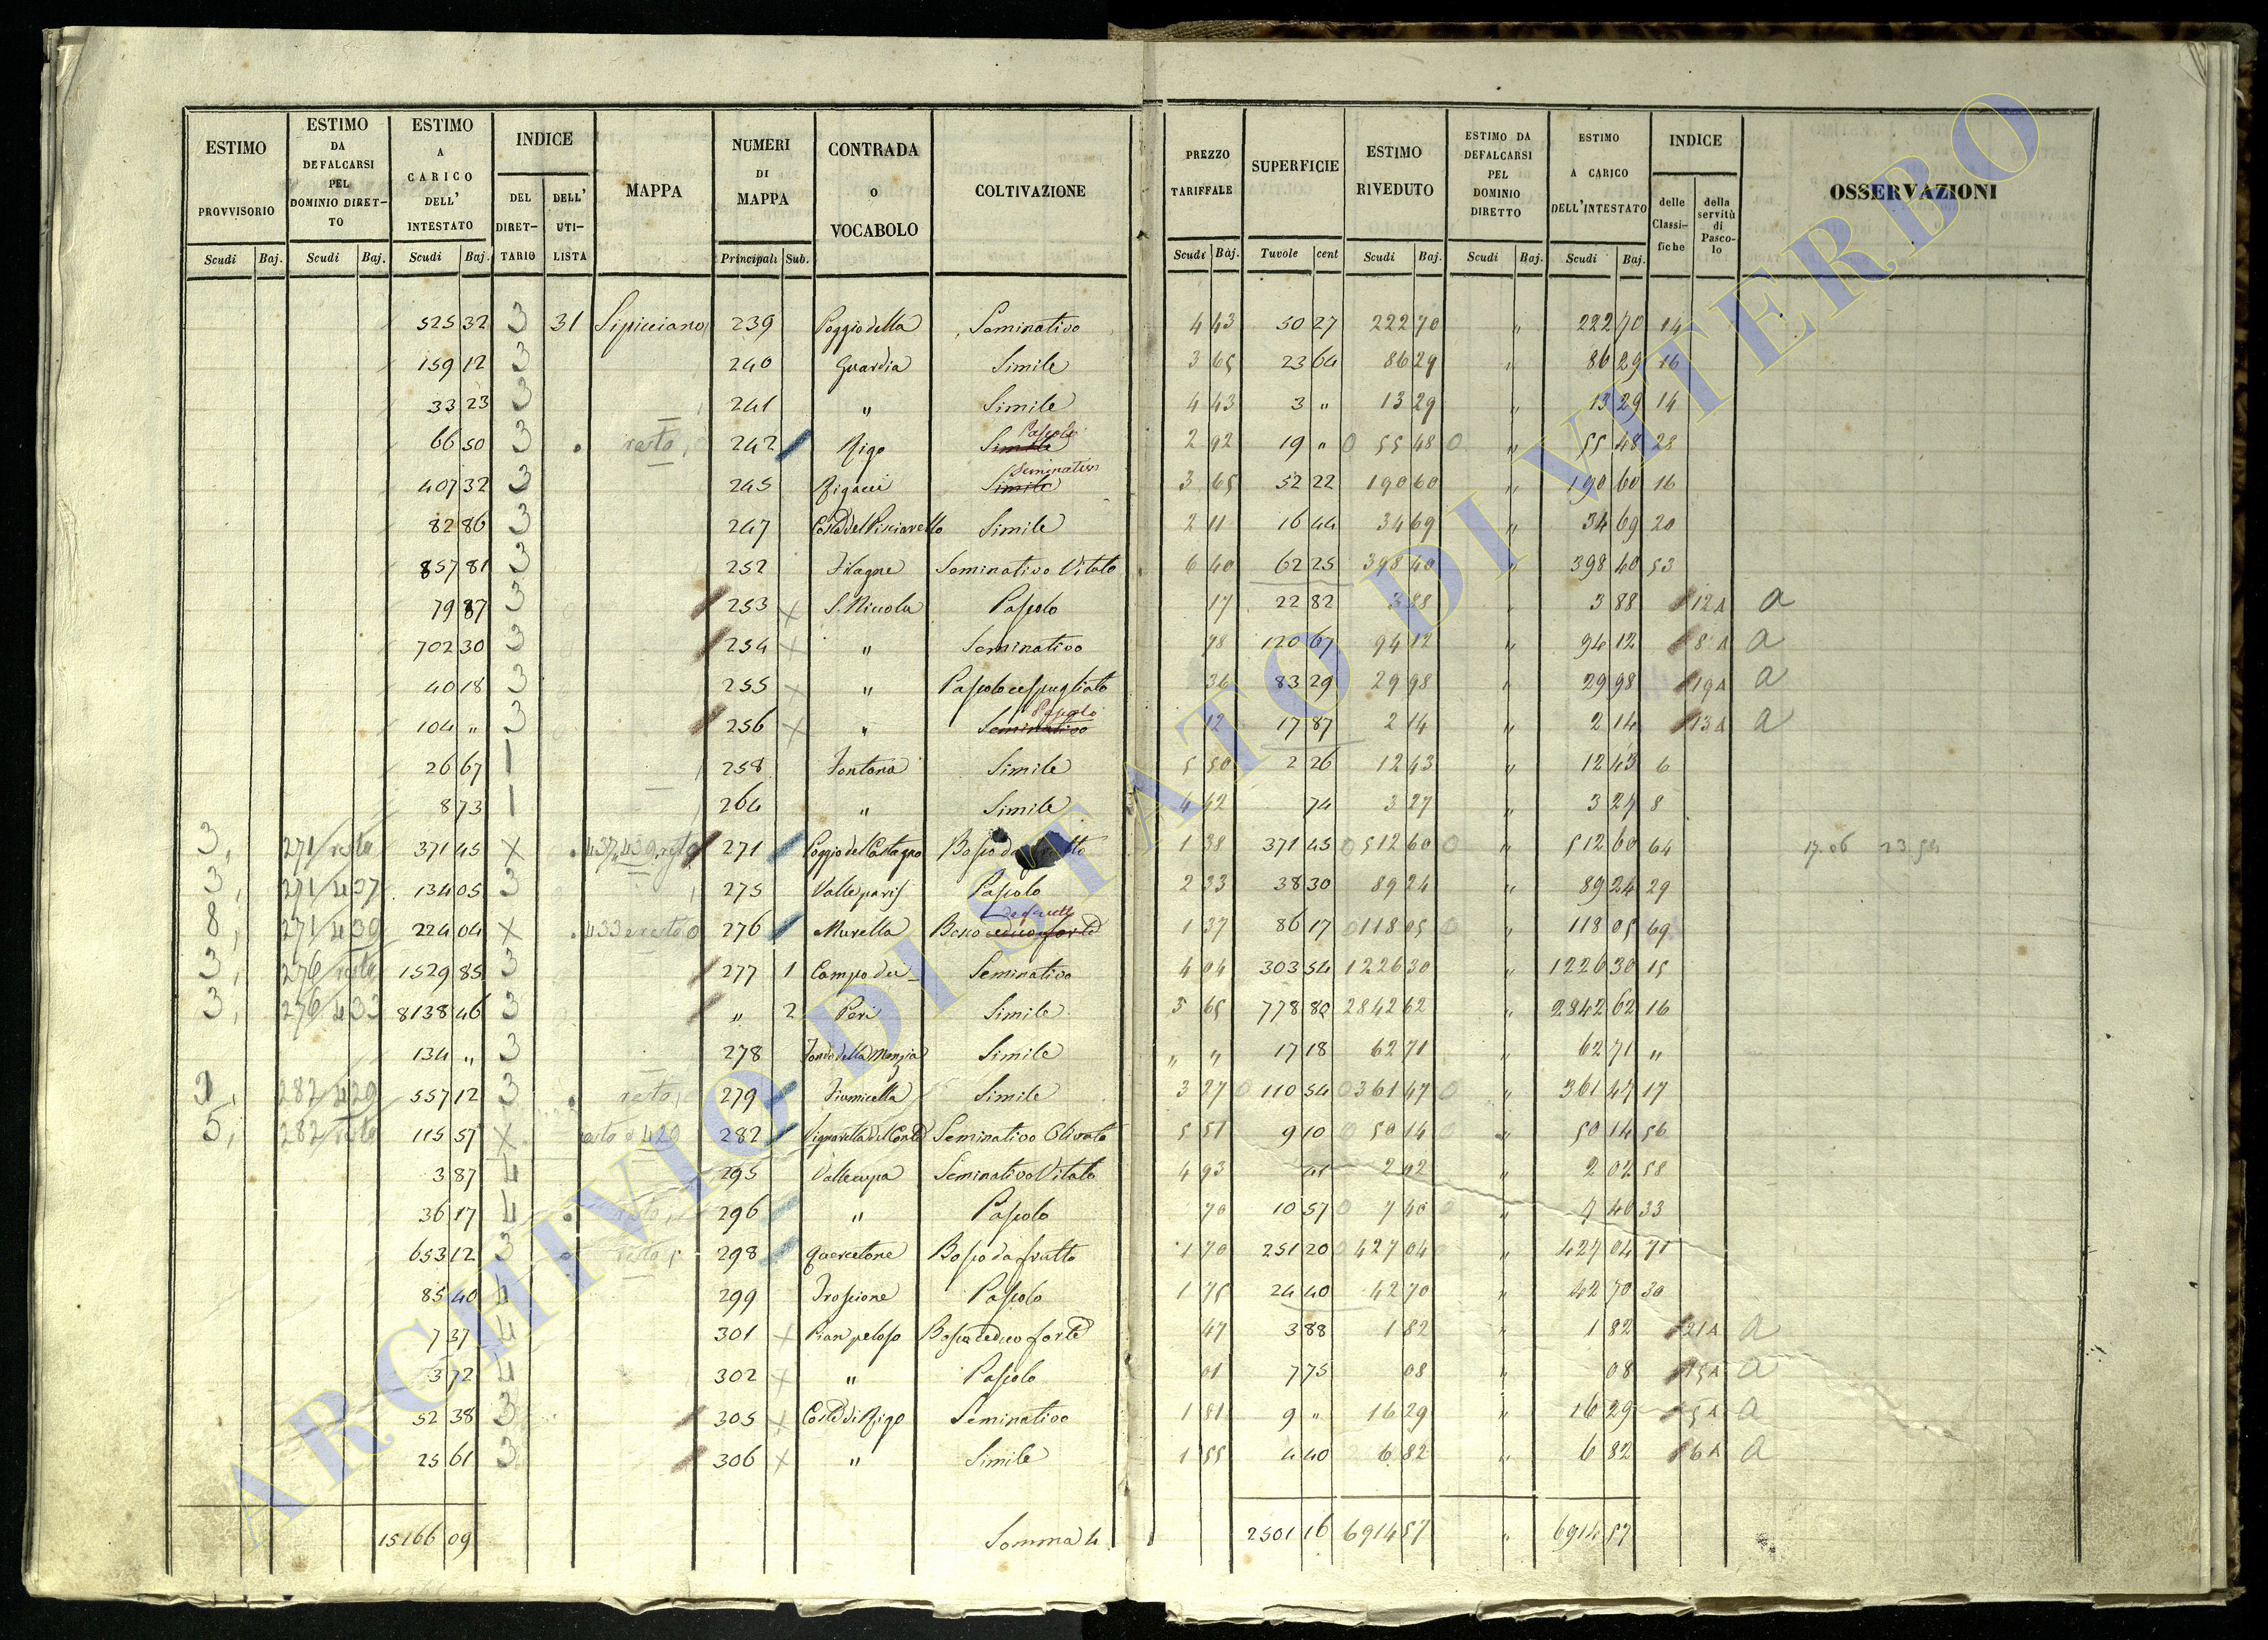 ESTIMO PROVVISORIO | ESTIMO DA DEFALCARSI PEL DOMINIO DIRET-TO | ESTIMO A CARICO DELL' INTESTATO | INDICE DEL DIRET-TARIO | DELL' UTI-LISTA | MAPPA | NUMERI DI MAPPA | CONTRADA o VOCABOLO | COLTIVAZIONE | PREZZO TARIFFALE | SUPERFICIE | ESTIMO RIVEDUTO | ESTIMO DA DEFALCARSI PEL DOMINIO DIRETTO | ESTIMO A CARICO DELL'INTESTATO | INDICE delle Classi-fiche | della servitù di Pasco-lo | OSSERVAZIONI
Scudi Baj. Scudi Baj. Scudi Baj. Principali Sub. Scudi Baj. Tavole cent Scudi Baj. Scudi Baj. Scudi Baj.
525 32 3 31 Sipicciano 239 Poggio della Seminativo 4 43 50 27 222 70 " 222 70 14
159 12 3 240 Guardia Simile 3 65 23 64 86 29 " 86 29 16
33 23 3 241 " Simile 4 43 3 " 13 29 " 13 29 14
66 50 3 resto 242 Rigo Simile Pascolo 2 92 19 " 0 55 48 0 " 55 48 28
407 32 3 245 Rigacci Simile Seminativo 3 65 52 22 190 60 " 190 60 16
82 86 3 247 Costa del Pisciarello Simile 2 11 16 44 34 69 " 34 69 20
857 81 3 252 Filagne Seminativo Vitato 6 40 62 25 398 40 " 398 40 53
79 87 3 253 x S. Niccola Pascolo 17 22 82 3 88 " 3 88 12A a
702 30 3 254 x " Seminativo 78 120 67 94 12 " 94 12 8A a
40 18 3 255 x " Pascolo cespugliato 36 83 29 29 98 " 29 98 19A a
104 " 3 256 x " Seminativo Pascolo 12 17 87 2 14 " 2 14 13A a
26 67 1 258 Fontana Simile 5 50 2 26 12 43 " 12 43 6
8 73 1 264 " Simile 4 42 74 3 27 " 3 27 8
3, 271/resto 371 45 x 437, 439, resto 271 Poggio del Castagno Bosco da frutto 1 38 371 45 0 512 60 0 " 512 60 64 17.06
3, 271/437 134 05 3 275 Valle paris Pascolo 2 33 38 30 89 24 " 89 24 29
8, 271/439 224 04 x 433 e resto 0 276 Murella Bosco ceduo forte 1 37 86 17 0 118 05 0 " 118 05 69
3, 276/resto 1529 85 3 277 1 Campo dei Seminativo 4 04 303 54 1226 30 " 1226 30 15
3, 276/433 8138 46 3 " 2 Peri Simile 3 65 778 80 2842 62 " 2842 62 16
134 " 3 278 Simile " " 17 18 62 71 " 62 71 "
282/429 557 12 3 resto 279 Fiumicella Simile 3 27 0 110 54 0 361 47 0 " 361 47 17
5, 282/resto 115 57 x resto e 429 282 Seminativo Olivato 5 51 9 10 0 50 14 0 " 50 14 56
3 87 4 295 Vallecupa Seminativo Vitato 4 93 41 2 02 " 2 02 58
36 17 4 resto 296 " Pascolo 70 10 57 0 7 40 0 " 7 40 33
653 12 3 resto 298 Quercetone Bosco da frutto 1 70 251 20 0 427 04 0 " 427 04 71
85 40 4 299 Troscione Pascolo 1 75 24 40 42 70 " 42 70 30
7 37 4 301 x Pian peloso Bosco ceduo forte 47 3 88 1 82 " 1 82 21A a
3 72 4 302 x " Pascolo 01 7 75 08 " 08 15A a
52 38 3 305 x Coste di Rigo Seminativo 1 81 9 " 16 29 " 16 29 5A a
25 61 3 306 x " Simile 1 55 4 40 6 82 " 6 82 6A a
15166 09 Somma 2501 16 6914 57 " 6914 57
ARCHIVIO DI STATO DI VITERBO